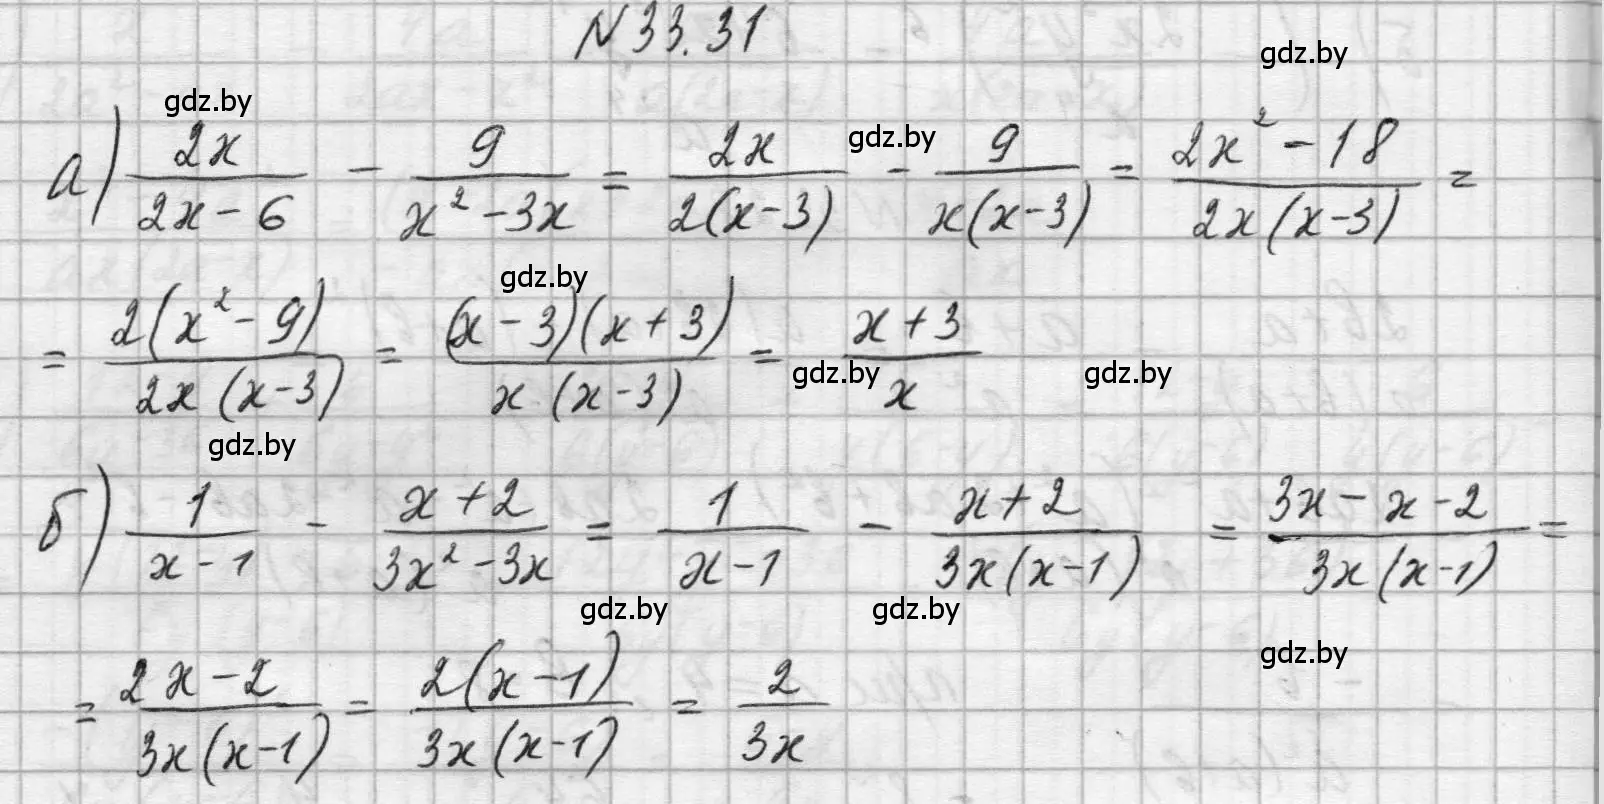 N 33.31
gdz.by
gdz.by
а) 2x/(2x-6) - 9/(x²-3x) = 2x/(2(x-3)) gdz.by - 9/(x(x-3)) = (2x²-18)/(2x(x-3)) =
gdz.by
= 2(x²-9)/(2x(x-3)) = (x-3)(x+3)/(x(x-3)) = gdz.by (x+3)/x gdz.by
gdz.by
б) 1/(x-1) - (x+2)/(3x²-3x) = 1/(x-1) - (x+2)/(3x(x-1)) = (3x-x-2)/(3x(x-1)) =
gdz.by gdz.by
gdz.by
= (2x-2)/(3x(x-1)) = 2(x-1)/(3x(x-1)) = 2/(3x)